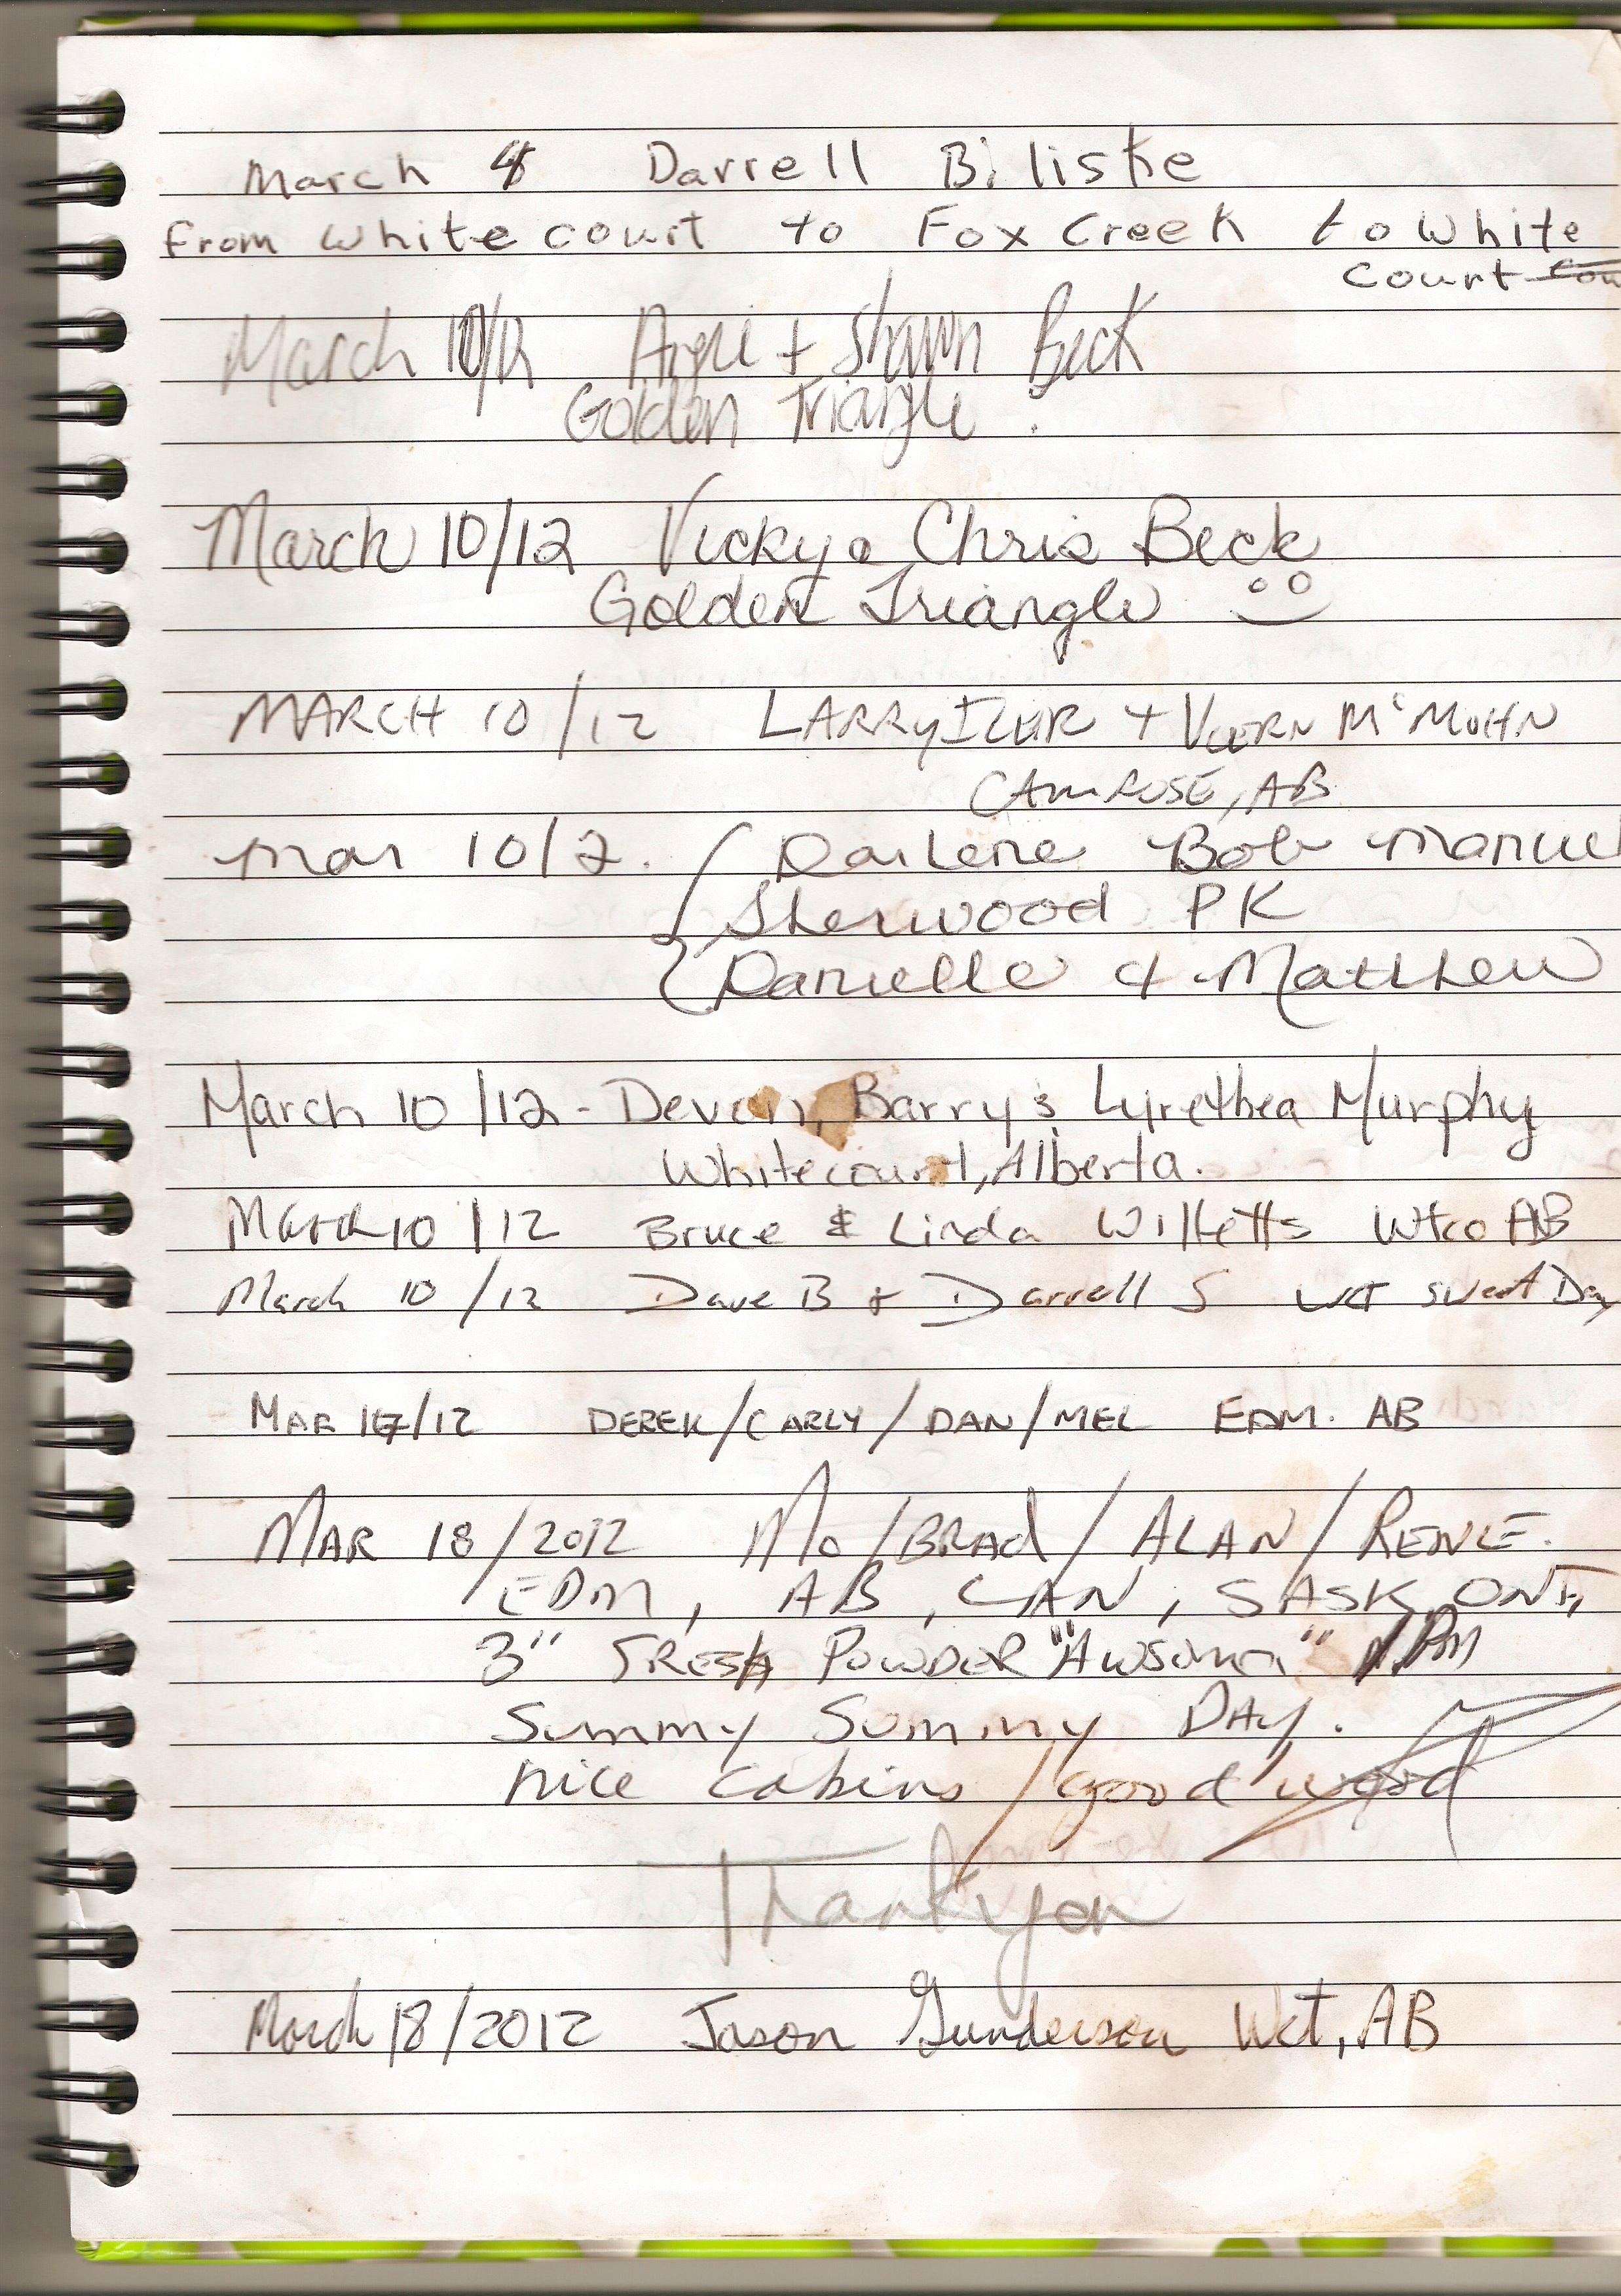 March 8 Darrell Biliske
from Whitecourt to Fox Creek to White
court
March 10/12 Angie + Shawn Beck
Golden Triangle.
March 10/12 Vicky & Chris Beck
Golden Triangle
MARCH 10/12 LARRY + VERN
CAMROSE, AB
Mar 10/2. Darlene Bob Manuel
Sherwood PK
Danielle & Matthew
March 10/12 - Devon, Barry & Lyrethea Murphy
Whitecourt, Alberta.
March 10/12 Bruce & Linda Willetts Wtco AB
March 10/12 Dave B + Darrell S WCT Sweet Day
MAR 17/12 DEREK/CARLY/DAN/MEL EDM. AB
MAR 18/2012 MO/BRAd/ALAN/
EDM, AB, CAN, SASK, ONT,
3" FRESH POWDER "AWSOME"
Summy Sominy DAy.
nice cabins/good wood
Thankyou
March 18/2012 Jason Gunderson Wct, AB